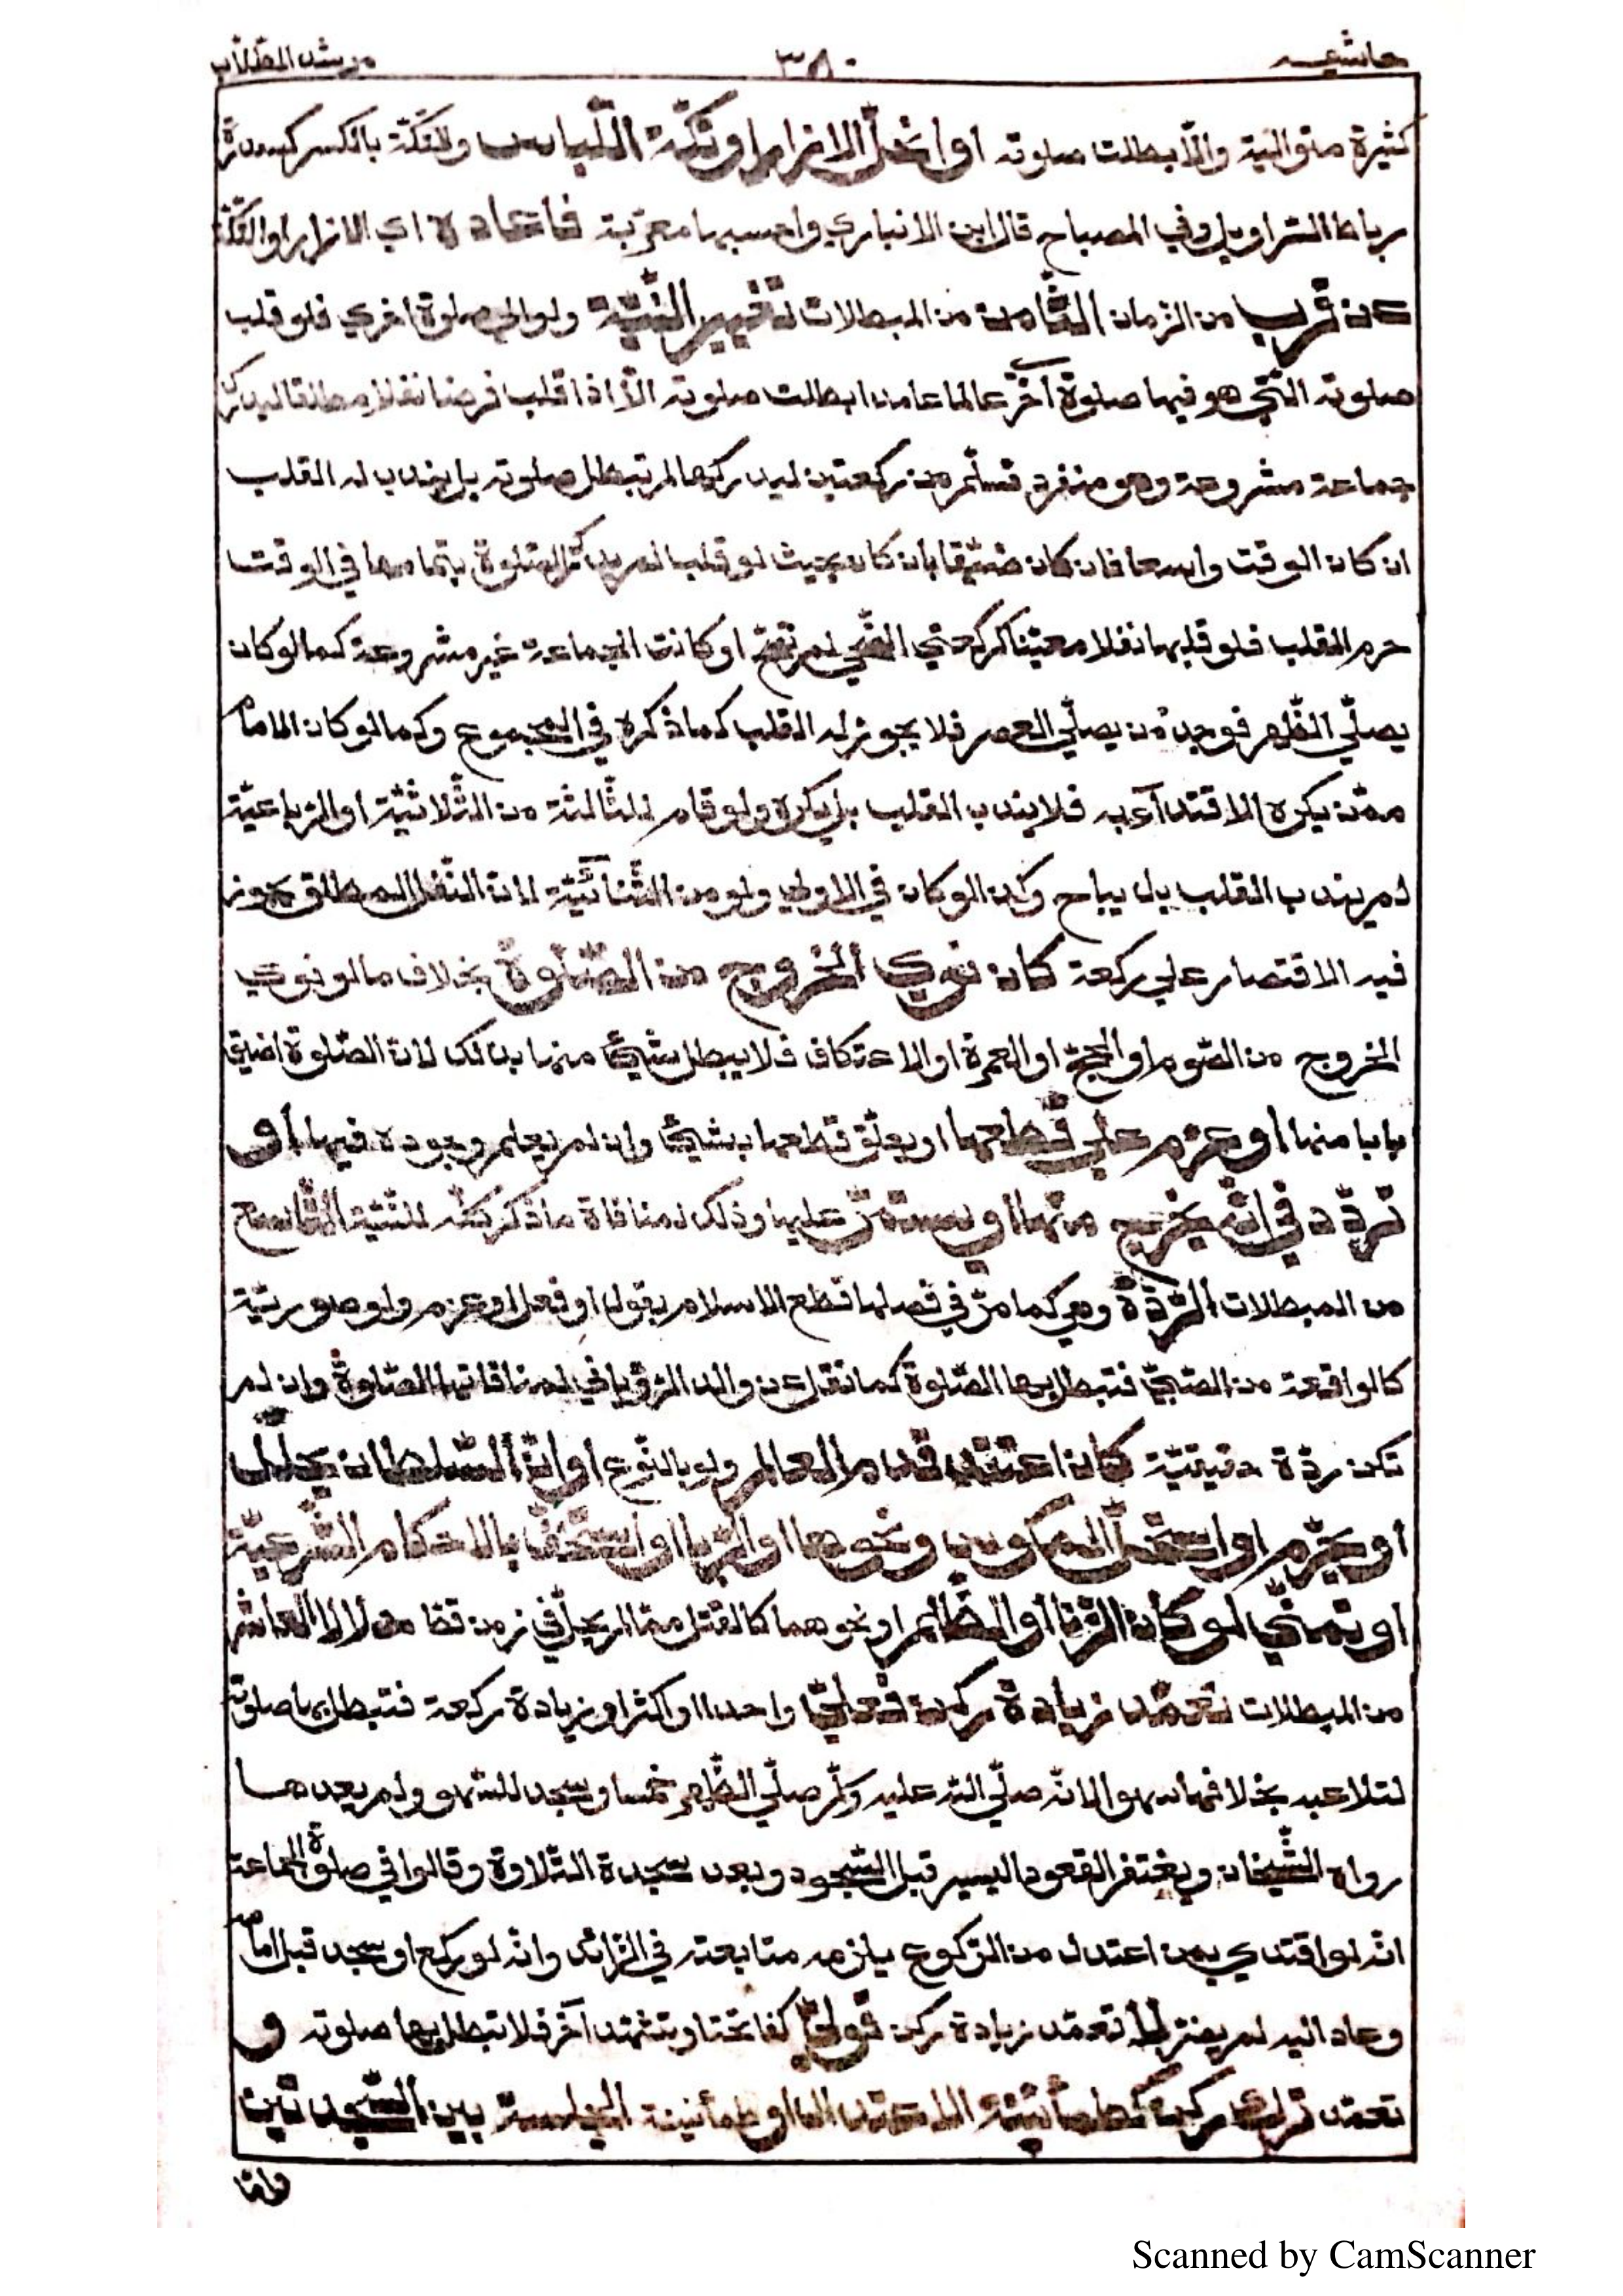 حاشيـه ٣٨٠ مرشد الطلاب
كثيرة متوالية والّا بطلت صلوته او انحلّ الازرار او تكّة اللّباس والتكّة بالكسر كسدرة
رباط السّراويل وفي المصباح قال ابن الانباري واحسبها معرّبة فاعاده اي الازرار او التكّة
عن قرب من الزمان الثّامن من المبطلات تغيير النّيّة ولو الي صلوة اخري فلو قلب
صلوته الّتي هو فيها صلوة آخر عالما عامدا بطلت صلوته الّا اذا قلب فرضا نفلا مطلقا ليدرك
جماعة مشروعة وهو منفرد فسلّم من ركعتين ليدركها لم تبطل صلوته بل يندب له القلب
ان كان الوقت واسعا فان كان ضيّقا بان كان بحيث لو قلب لم يدرك الصّلوة بتمامها في الوقت
حرم القلب فلو قلبها نفلا معيّنا كركعتي الضّحي لم تصحّ او كانت الجماعة غير مشروعة كما لو كان
يصلّي الظّهر فوجد من يصلّي العصر فلا يجوز له القلب كما ذكره في المجموع وكما لو كان الامام
ممّن يكره الاقتدآء به فلا يندب القلب بل يكره ولو قام للثّالثة من الثّلاثيّة او الرّباعيّة
لم يندب القلب بل يباح وكذا لو كان في الاولي ولو من الثّنائيّة لان النّفل المطلق يجوز
فيه الاقتصار علي ركعة كان نوي الخروج من الصّلوة بخلاف ما لو نوي
الخروج من الصّوم او الحجّ او العمرة او الاعتكاف فلا يبطل شيئ منها بذلك لان الصّلوة اضيق
بابا منها او عزم علي قطعها او يعلّق قطعها بشيئ وان لم يعلم وجوده فيها او
تردّد في انّه يخرج منها او يستمرّ عليها وذلك لمنافاة ما ذكر كلّه للنّيّة التّاسع
من المبطلات الرّدّة وهي كما مرّ في فصلها قطع الاسلام بقول او فعل او عزم ولو صوريّة
كالواقعة من الصّبيّ فتبطل بها الصّلوة كما نقل عن والد الرّوياني لمنافاتها الصّلوة وان لم
تكن ردّة حقيقيّة كان اعتقد قدم العالم ولو بالنّوع او انّ السّلطان يحلّل
او يحرّم او استحلّ المكوس ونحوها او الرّبا او استخفّ بالاحكام الشّرعيّة
او تمنّي لو كان الزّنا او الظّلم او نحوهما كالقتل ممّا لم يحلّ في زمن قطّ حلالا العاشر
من المبطلات تعمّد زيادة ركن فعليّ واحدا او اكثر او زيادة ركعة فتبطل بها صلوته
لتلاعبه بخلافها سهوا لانّه صلّي اللّه عليه وسلّم صلّي الظّهر خمسا وسجد للسّهو ولم يعدها
رواه الشّيخان ويغتفر القعود اليسير قبل السّجود وبعد سجدة التّلاوة وقالوا في صلوة الجماعة
انّه لو اقتدي بمن اعتدل من الرّكوع يلزمه متابعته في الزّائد وانّه لو ركع او سجد قبل امامه
وعاد اليه لم يضرّ لا تعمّد زيادة ركن قوليّ كفاتحة او تشهّد آخر فلا تبطل بها صلوته و
تعمّد ترك ركن كطمأنينة الاعتدال او طمأنينة الجلسة بين السّجدتين
وامّا
Scanned by CamScanner